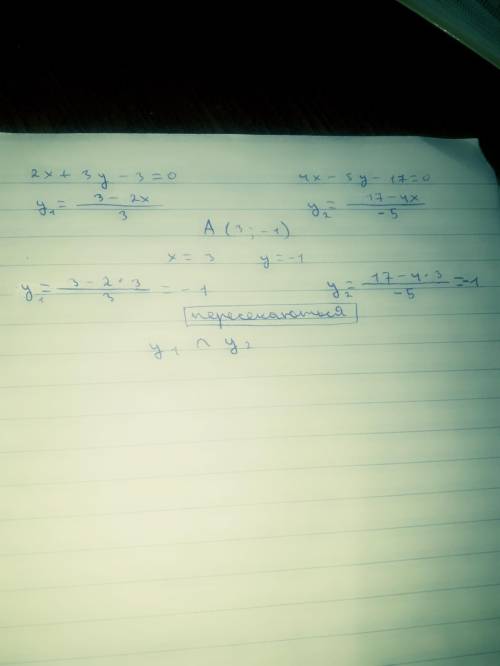 2x + 3y - 3 = 0    4x - 5y - 17 = 0
y₁ = (3 - 2x)/3    y₂ = (17 - 4x)/-5
A (3 ; -1)
x = 3    y = -1
y₁ = (3 - 2 · 3)/3 = -1    y₂ = (17 - 4 · 3)/-5 = -1
пересекаються
y₁ ∩ y₂